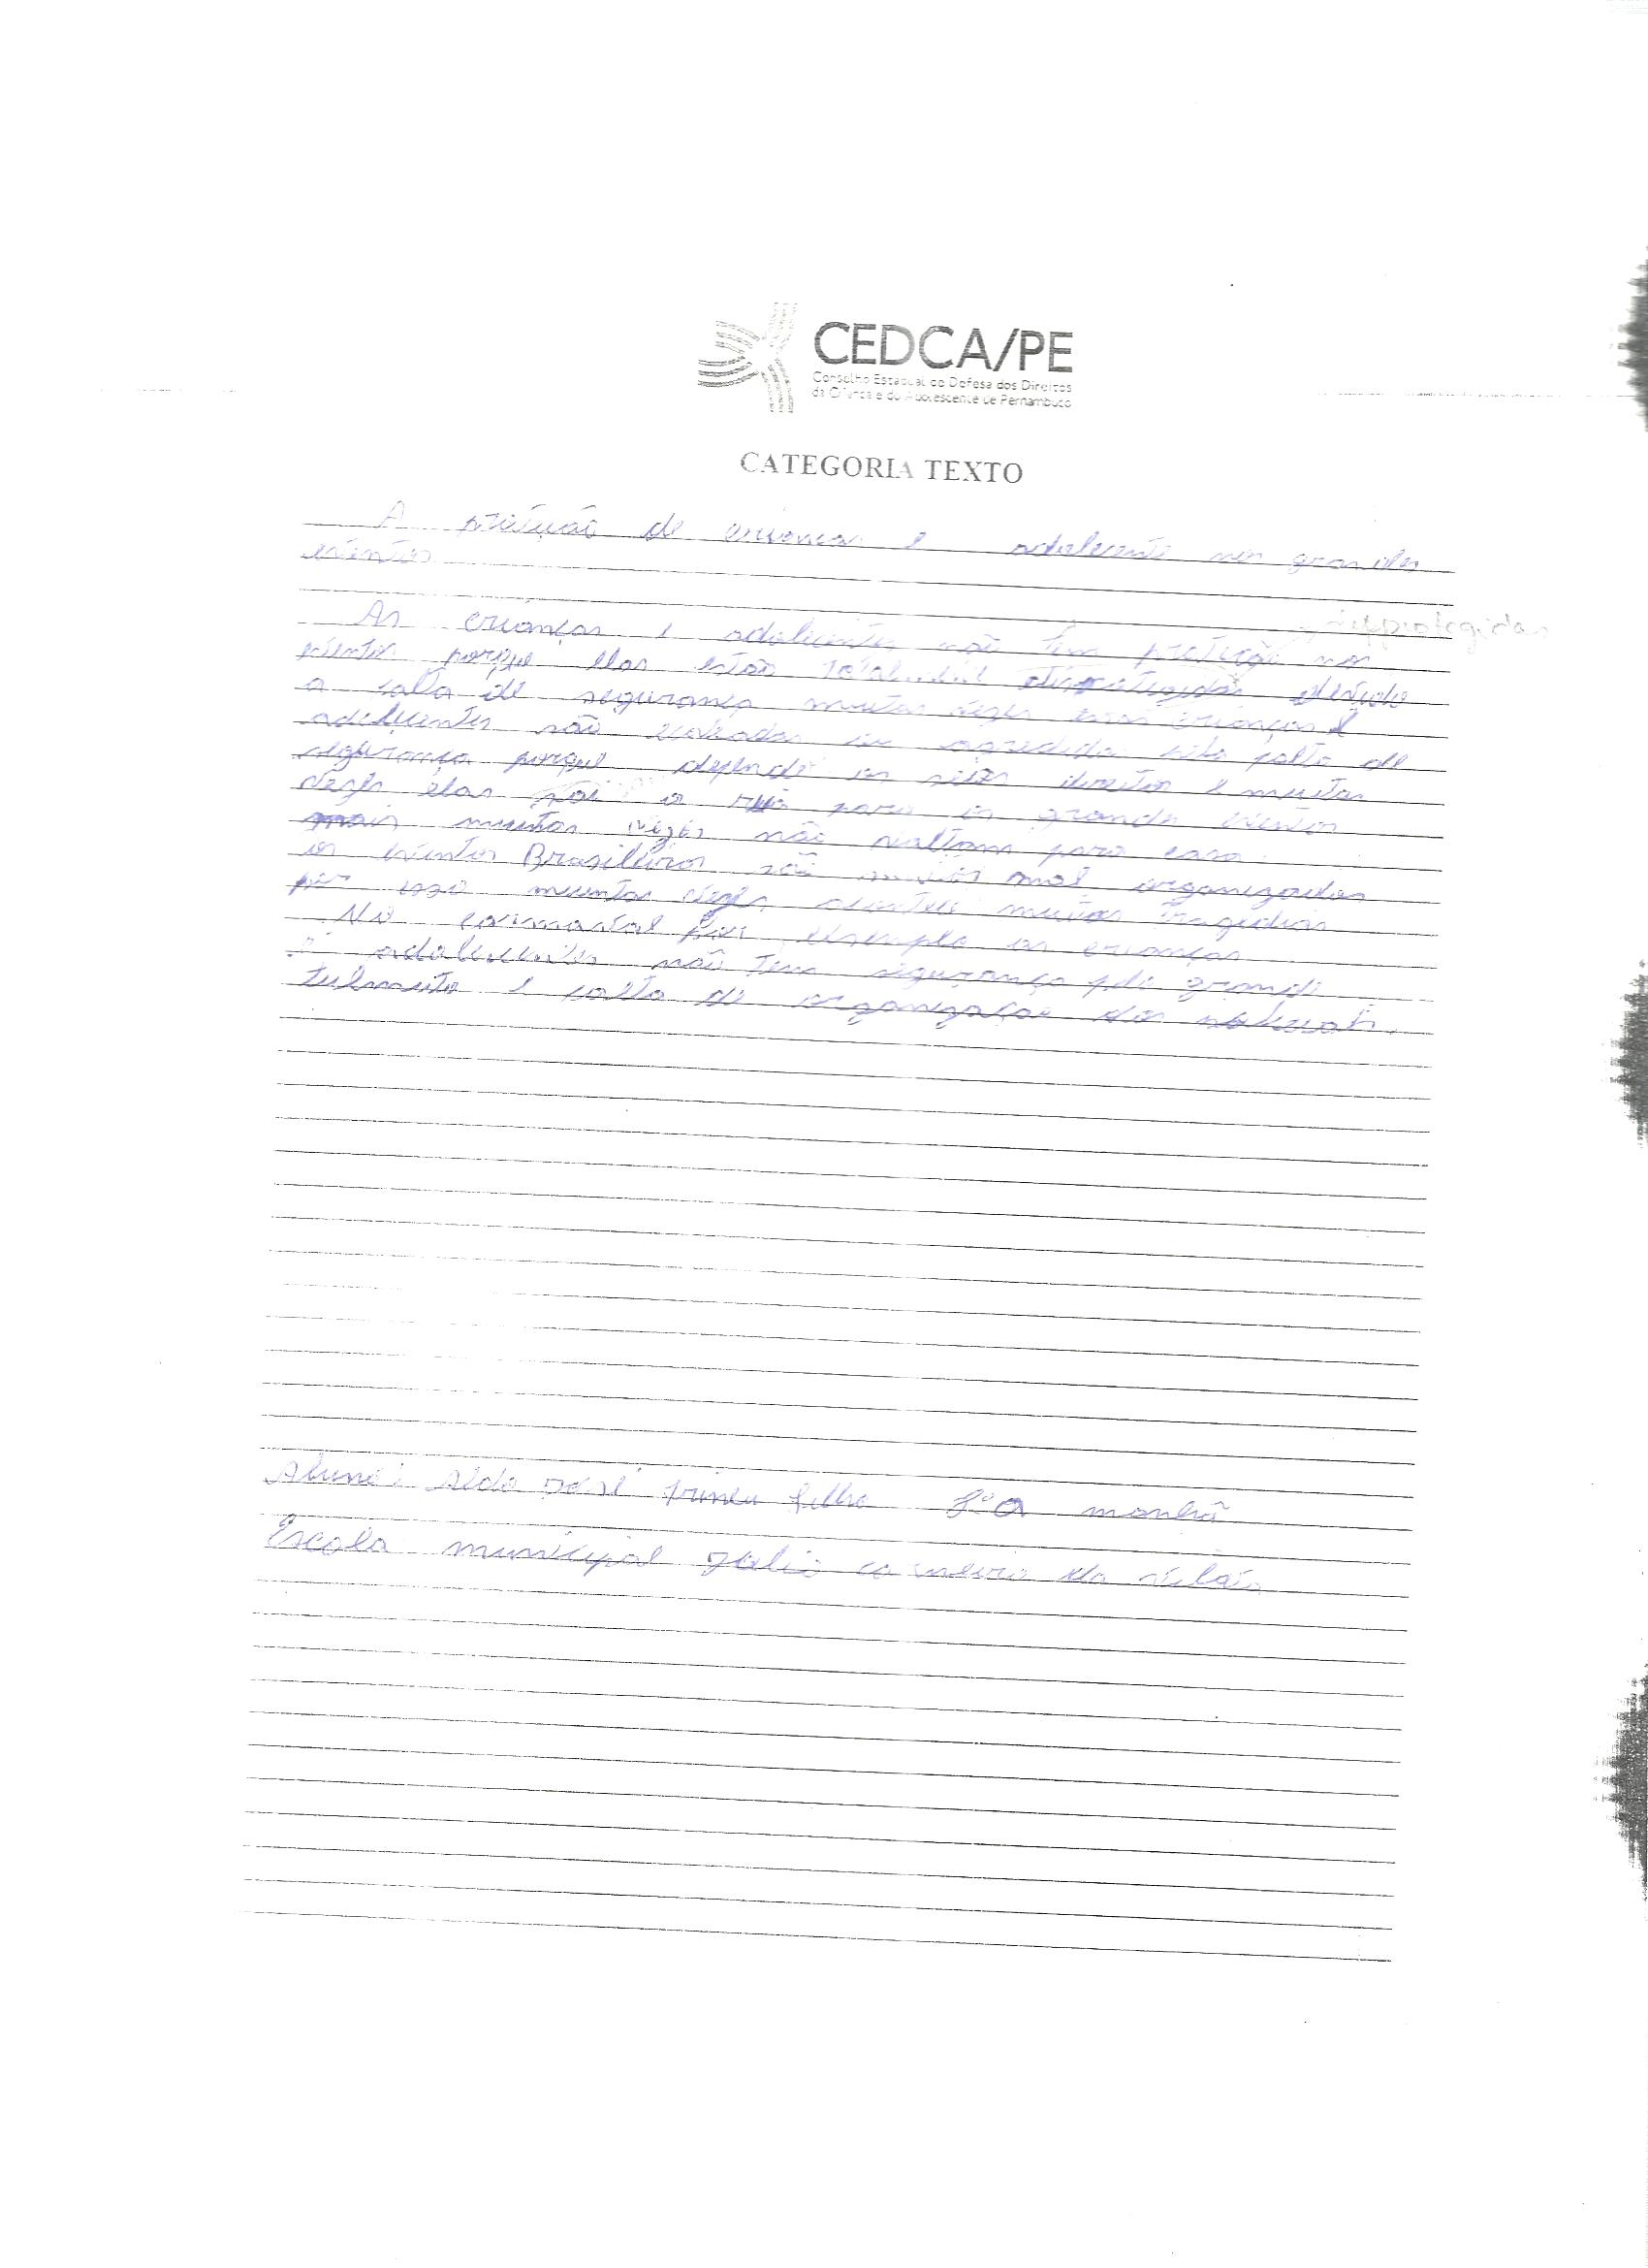 CEDCA/PE
Conselho Estadual de Defesa dos Direitos
da Criança e do Adolescente de Pernambuco
CATEGORIA TEXTO
A proteção de crianças e adolecente nos grandes
eventos
desprotegidas
As crianças e adolecentes não tem proteção nos
eventos porque elas estão totalmente devido
a falta de segurança muitas vezes essas crianças e
adolecentes são ou agredidas pela falta de
segurança porque depende os seus direitos e muitas
vezes elas a para os grande eventos
mais muitas vezes não voltam para casa
os eventos Brasileiros são muitos mal organizados
por isso muitas vezes muitas tragedias
No carnaval por exemplo as crianças
e adolecentes não tem segurança pelo grande
e falta de organização dos
Aluno: Aldo José filho 8º A manhã
Escola municipal Julio da